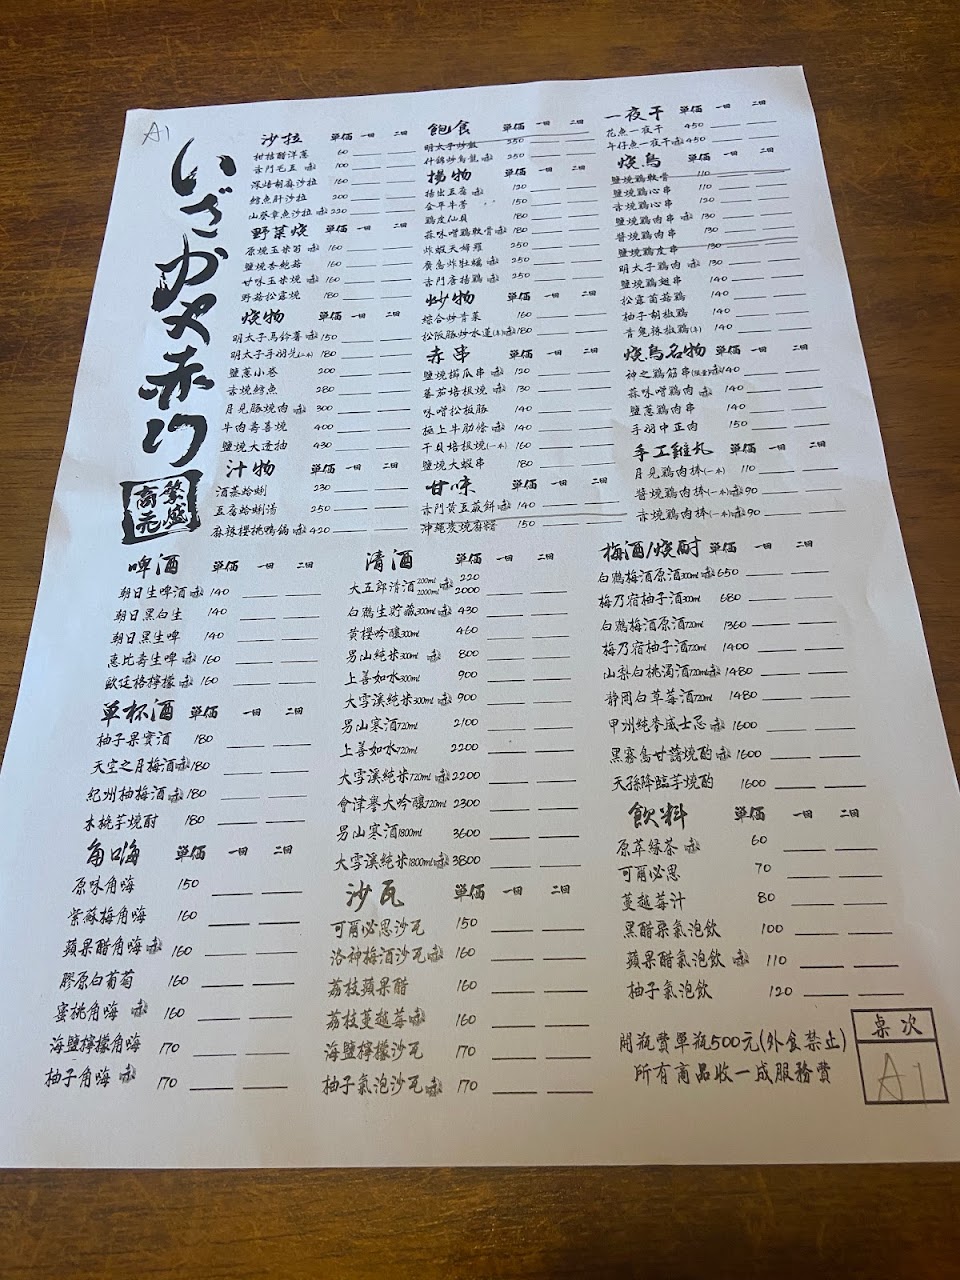 A1
いざかや赤门
繁盛
商元
沙拉 単価 一回 二回
柑桔醋洋蔥 60
赤門毛豆 赤 100
深焙胡麻沙拉 160
鱈魚肝沙拉 200
山葵章魚沙拉 赤 220
野菜燒 単価 一回 二回
原燒玉米筍 赤 160
鹽燒杏鮑菇 160
甘味玉米燒 赤 160
野菇松露燒 180
燒物 単価 一回 二回
明太子馬鈴薯 赤 150
明太子手羽先(二本) 180
鹽蔥小卷 200
赤燒鱈魚 280
月見豚燒肉 赤 300
牛肉壽喜燒 400
鹽燒大透抽 430
汁物 単価 一回 二回
酒蒸蛤蜊 230
五香蛤蜊湯 250
麻辣櫻桃鴨鍋 赤 420
飽食 単価 一回 二回
明太子炒飯 250
什錦炒烏龍 赤 250
揚物 単価 一回 二回
揚出豆腐 赤 120
金平牛蒡 150
鷄皮仙貝 180
蒜味噌鷄軟骨 赤 180
炸蝦天婦羅 250
廣島炸牡蠣 赤 250
赤門唐揚鷄 赤 250
炒物 単価 一回 二回
綜合炒青菜 160
松阪豚炒水蓮(季) 赤 180
赤串 単価 一回 二回
鹽燒櫛瓜串 赤 120
蕃茄培根燒 赤 130
味噌松板豚 140
極上牛肋條 赤 140
干貝培根燒(一本) 160
鹽燒大蝦串 180
甘味 単価 一回 二回
赤門黃豆蕨餅 赤 140
沖繩炭燒麻糬 150
一夜干 単価 一回 二回
花魚一夜干 450
午仔魚一夜干 赤 450
燒鳥 単価 一回 二回
鹽燒鷄軟骨 110
鹽燒鷄心串 120
赤燒鷄心串 120
鹽燒鷄肉串 赤 130
醬燒鷄肉串 130
鹽燒鷄皮串 130
明太子鷄肉 赤 130
鹽燒鷄翅串 140
松露菌菇鷄 140
柚子胡椒鷄 140
青鬼辣椒鷄(季) 140
燒鳥名物 単価 一回 二回
神之鷄筋串(限量) 赤 140
蒜味噌鷄肉 赤 140
鹽蔥鷄肉串 140
手羽中正肉 150
手工雞丸 単価 一回 二回
月見鷄肉棒(一本) 110
醬燒鷄肉棒(一本) 赤 90
赤燒鷄肉棒(一本) 赤 90
啤酒 単価 一回 二回
朝日生啤酒 赤 140
朝日黑白生 140
朝日黑生啤 140
惠比壽生啤 赤 160
歐廷格檸檬 赤 160
単杯酒 単価 一回 二回
柚子果實酒 180
天空之月梅酒 赤 180
紀州柚梅酒 赤 180
木挑芋燒酎 180
角嗨 単価 一回 二回
原味角嗨 150
紫蘇梅角嗨 160
蘋果醋角嗨 赤 160
膠原白葡萄 160
蜜桃角嗨 赤 160
海鹽檸檬角嗨 170
柚子角嗨 赤 170
清酒 単価 一回 二回
大五郎清酒 200ml 2000ml 赤 220 2000
白鶴生貯藏300ml 赤 430
黃櫻吟釀300ml 460
男山純米300ml 赤 800
上善如水300ml 900
大雪溪純米300ml 赤 900
男山寒酒720ml 2100
上善如水720ml 2200
大雪溪純米720ml 赤 2200
會津譽大吟釀720ml 2300
男山寒酒1800ml 3600
大雪溪純米1800ml 赤 3800
沙瓦 単価 一回 二回
可爾必思沙瓦 150
洛神梅酒沙瓦 赤 160
荔枝蘋果醋 160
荔枝蔓越莓 赤 160
海鹽檸檬沙瓦 170
柚子氣泡沙瓦 赤 170
梅酒/燒酎 単価 一回 二回
白鶴梅酒原酒300ml 赤 650
梅乃宿柚子酒300ml 680
白鶴梅酒原酒720ml 1360
梅乃宿柚子酒720ml 1400
山梨白桃濁酒720ml 赤 1480
靜岡白草莓酒720ml 1480
甲州純麥威士忌 赤 1600
黑霧島甘藷燒酌 赤 1600
天孫降臨芋燒酌 1600
飲料 単価 一回 二回
原萃綠茶 赤 60
可爾必思 70
蔓越莓汁 80
黑醋栗氣泡飲 100
蘋果醋氣泡飲 赤 110
柚子氣泡飲 120
開瓶費單瓶500元(外食禁止)
所有商品收一成服務費
桌次
A1